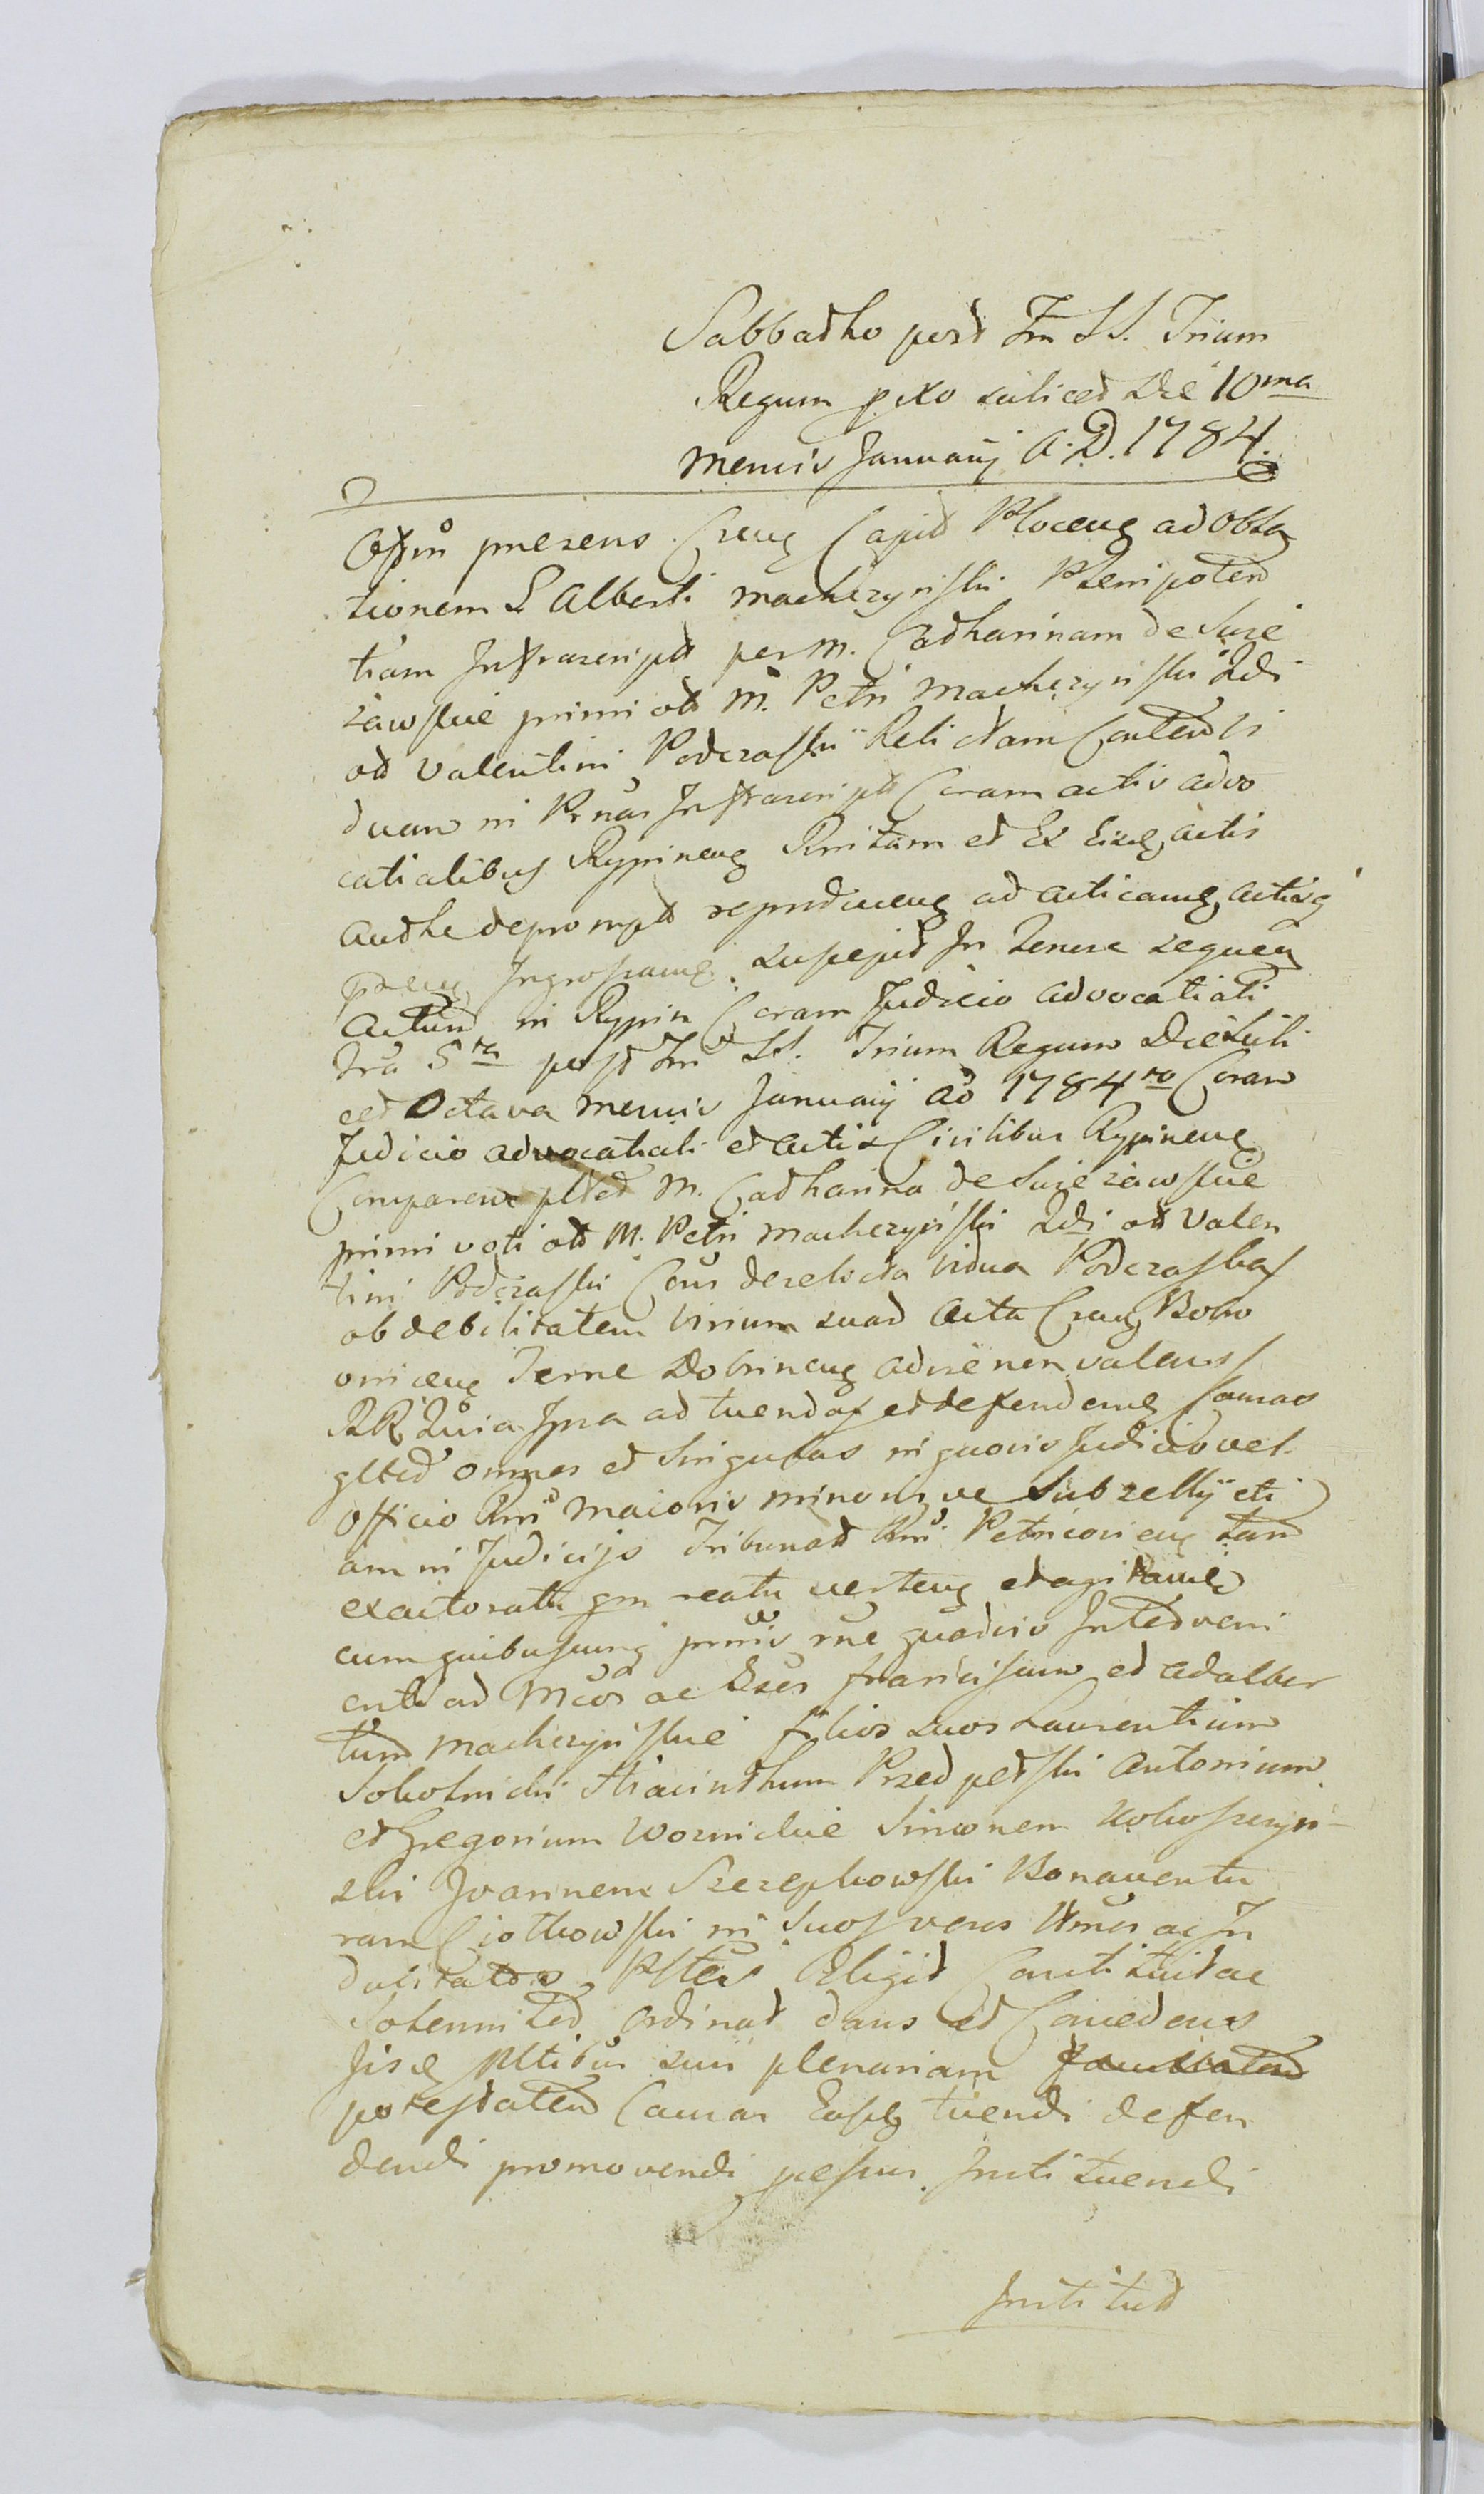 Sabbatho post Fm SS. Trium
Regum pxo scilicet Die 10ma
Mensis Januarij A. D. 1784.
Offm presens Crens Capit Plocens ad Obla
tionem G Alberti Macherzyński Plenipoten
tiam Infrascript per M. Catharinam de Suie
rzawskie primi ott M. Petri Macherzyński 2di
ott Valentini Podczaskii Relictam
duam in Prnas Infrascript Coram actis advo
catialibus Rypinens Rnitam et Ex Eisd actis
authe deprompt reproducens ad acticand actisq
prens Ingrossand suscepit In Tenore sequen
Actum in Rypin Coram Judicio advocatiali
fria 5ta post Fm SS. Trium Regum Die scili
cet Octava Mensis Januarij ao 1784to Coram
Judicio advocatiali et actis Civilibus Rypinens
Comparens psltr M. Catharina de Suierzawskie
primi voti ott M. Petri Macherzyński 2di ott Valen
tini Podczaski Cons derelicta vidua Podczaska
ob debilitatem virium suad Acta Crens Bobro
vnicens Terrae Dobrinens adire non valens
RR Quia Ipsa ad tuendas et defendend Causas
gltr omnes et Singulas in quovis Judicio vel
Officio Rni Maioris minorisve Subsellij eti
am in Judicijs Tribunatt Rni Petricoviens tam
ex actoratu qm reatu vertens et agitand
cum quibuscunq prnis rne quavis Interveni
enti ad Mcos ac Exes Franciscum et Adalber
tum Macherzyńskie filios suos Laurentium
Sokolnicki Hiacinthum Przedpełski Antonium
et Gregorium Woznickie Simonem Kokoszczyń-
ski Joannem Szczepkowski Bonaventu
ram Ciołkowski in Suos veros ac In
dubitatos Pltes Eligit Constituit ac
Solennitr Ordinat dans et Concedens
Iisd Pltibus suis plenariam facultatem
potestatem Causas Easd tuendi defen
dendi promovendi Instituendi
Institut